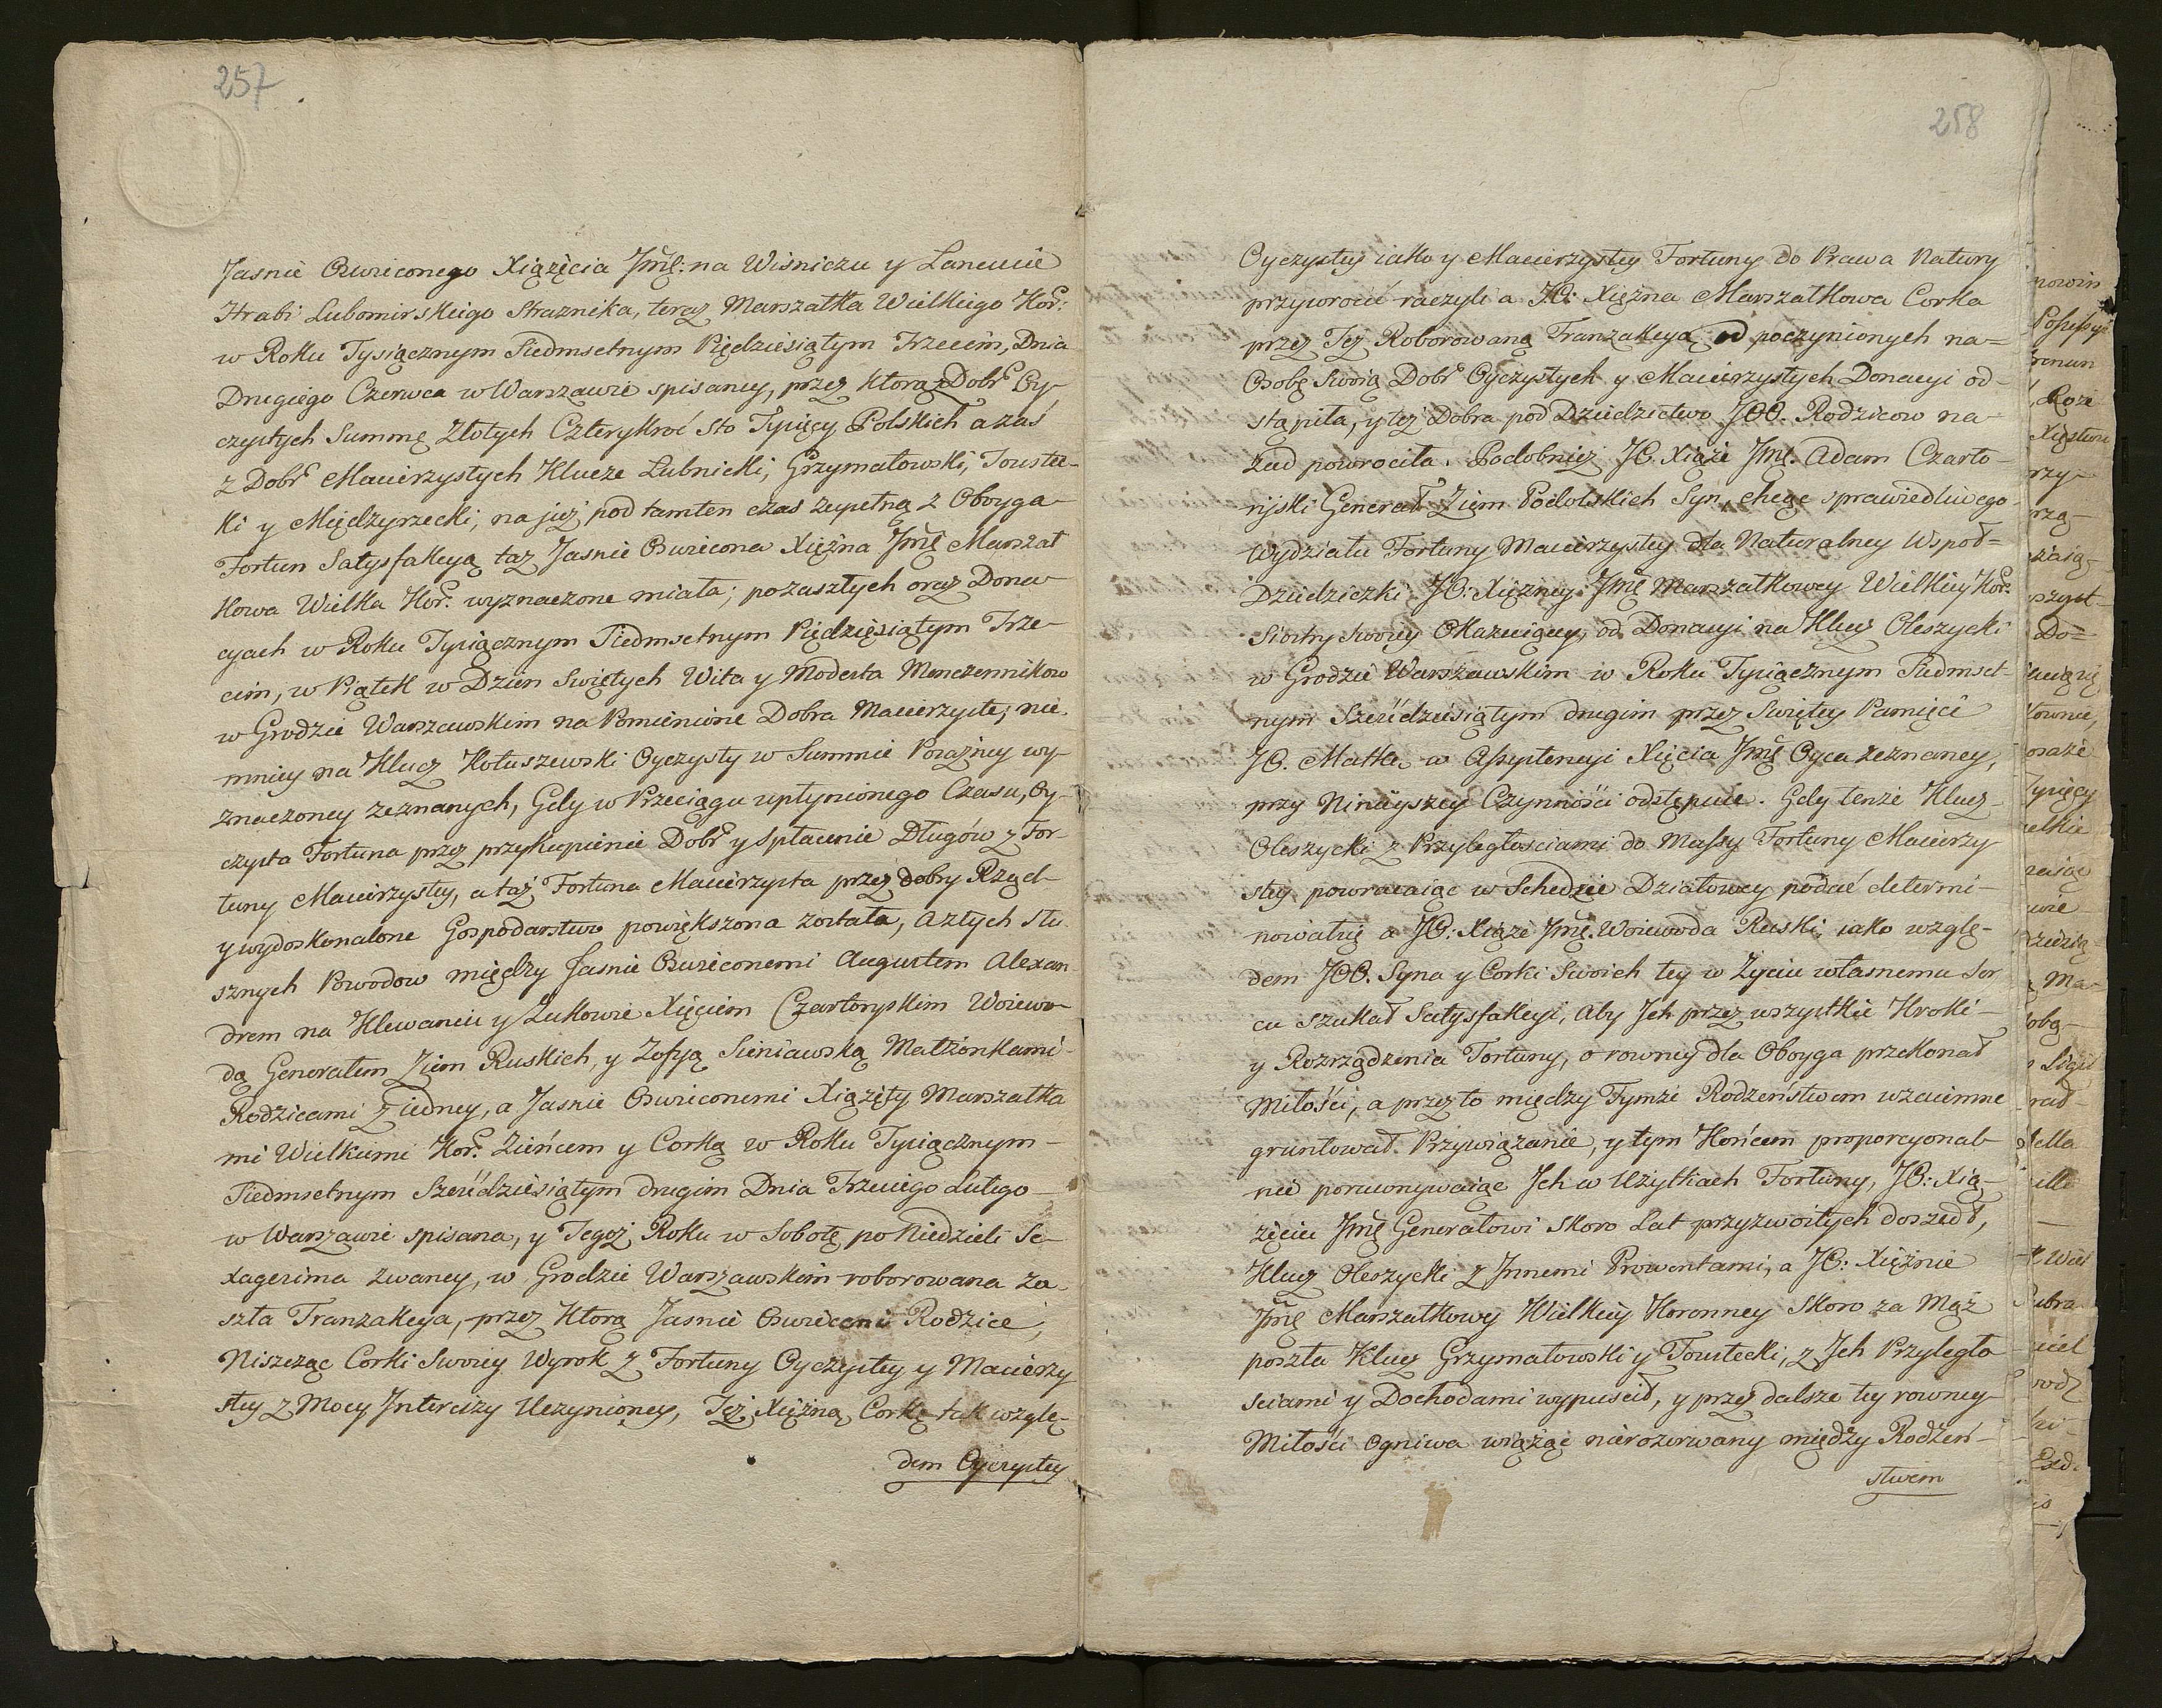 257
Jasnie Oswieconego Xiążęcia Jmę: na Wiśniczu y Lancucie
Hrabi Lubomirskiego Straznika, teraz Marszałka Wielkiego Kor:
w Roku Tysiącznym Siedmsetnym Pięcdziesiątym Trzecim, Dnia
Drugiego Czerwca w Warszawie spisaney, przez ktorą z Dobr Oy-
czystych Summę Złotych Czterykroć sto Tysięcy Polskich a zaś
z Dobr Macierzystych Klucze Lubnicki, Grzymałowski, Touste-
ki y Międzyrzecki, na już pod tamten czas zupełną z Oboyga
Fortun Satysfakcyą taż Jasnie Oswiecona Xiężna Jmę Marszał
kowa Wielka Kor: wyznaczone miała; po zaszłych oraz Dona-
cyach w Roku Tysiącznym Siedmsetnym Pięcdziesiątym Trze-
cim, w Piątek w Dzien Swiętych Wita y Modesta Menczennikow
w Grodzie Warszawskim na Pomienione Dobra Macierzyste; nie
mniey na Klucz Kołuszewski Oyczysty w Summie Posażney wy-
znaczoney zeznanych, Gdy w Przeciągu upłynionego Czasu, Oy-
czysta Fortuna przez przykupienie Dobr y spłacenie Długów z For-
tuny Macierzystey, a taż Fortuna Macierzysta przez dobry Rząd
y wydoskonalone Gospodarstwo powiększona została, a z tych słu
sznych Powodow między Jasnie Oswieconemi Augustem Alexan
drem na Klewaniu y Zukowie Xięciem Czartoryskim Woiewo
dą Generałem Ziem Ruskich, y Zofyą Sieniawską Małżonkami
Rodzicami z iedney, a Jasnie Oswieconemi Xiążęty Marszałka
mi Wielkiemi Kor: Zieńcem y Corką w Roku Tysiącznym
Siedmsetnym Sześćdziesiątym drugim Dnia Trzeciego Lutego
w Warszawie spisana, y Tegoż Roku w Sobotę po Niedzieli Se-
xagesima zwaney, w Grodzie Warszawskim roborowana za-
szła Tranzakcya, przez ktorą Jasnie Oswieceni Rodzice,
Niszcząc Corki Swoiey Wyrok z Fortuny Oyczystey y Macierzy
stey z Mocy Intercizy Uczynioney, Też Xiężnę Corkę tak wzglę-
dem Oyczystey
258
Oyczystey iako y Macierzystey Fortuny do Prawa Natury
przywrocić raczyli a JO: Xiężna Marszałkowa Corka
przez Też Roborowaną Tranzakcyą od poczynionych na=
Osobę Swoią Dobr Oyczystych y Macierzystych Donacyi od-
stąpiła, y też Dobra pod Dziedzictwo JOO. Rodzicow na-
zad powrociła. Podobnież JO. Xiąże Jmę. Adam Czarto-
ryiski Generał Ziem Podolskich Syn, chcąc sprawiedliwego
Wydziału Fortuny Macierzystey dla Naturalney Wspoł=
Dziedziczki JO: Xiężney Jmę Marszałkowey Wielkiey Kor:
Siostry swoiey od Donacyi na Klucz Oleszycki
w Grodzie Warszawskim w Roku Tysiącznym Siedmset-
nym Sześćdziesiątym drugim przez Swiętey Pamięci
JO. Matkę w Assystencyi Xięcia Jmę Oyca zeznaney,
przy Ninieyszey Czynności odstępuie. Gdy tenże Klucz
Oleszycki z Przyległosciami do Massy Fortuny Macierzy
stey powracaiąc w Schedzie Działowey podać determi-
nował się a JO: Xiąże Jmę. Woiewoda Ruski, iako wzglę-
dem JOO. Syna y Corki Swoich tey w Życiu własnemu Ser
cu szukał Satysfakcyi, Aby Jch przez wszystkie Kroki
y Rozrządzenia Fortuny, o rowney dla Oboyga przekonał
Miłości, a przez to między Tymże Rodzeństwem wzaiemne
gruntował Przywiązanie, y tym Końcem proporcyonal-
nie porownywaiąc Jch w Użytkach Fortuny, JO: Xią-
zęciu Jmę Generałowi skoro Lat przyzwoitych doszedł,
Klucz Oleszycki z Jnnemi Prowentami, a JO: Xiężnie
Jmę Marszałkowy Wielkiey Koronney skoro za Mąż
poszła Klucz Grzymałowski y Toustecki, z Jch Przyległo
sciami y Dochodami wypuscił, y przez dalsze tey rowney
Miłości Ogniwa wiążąc nierozerwany między Rodzeń-
stwem